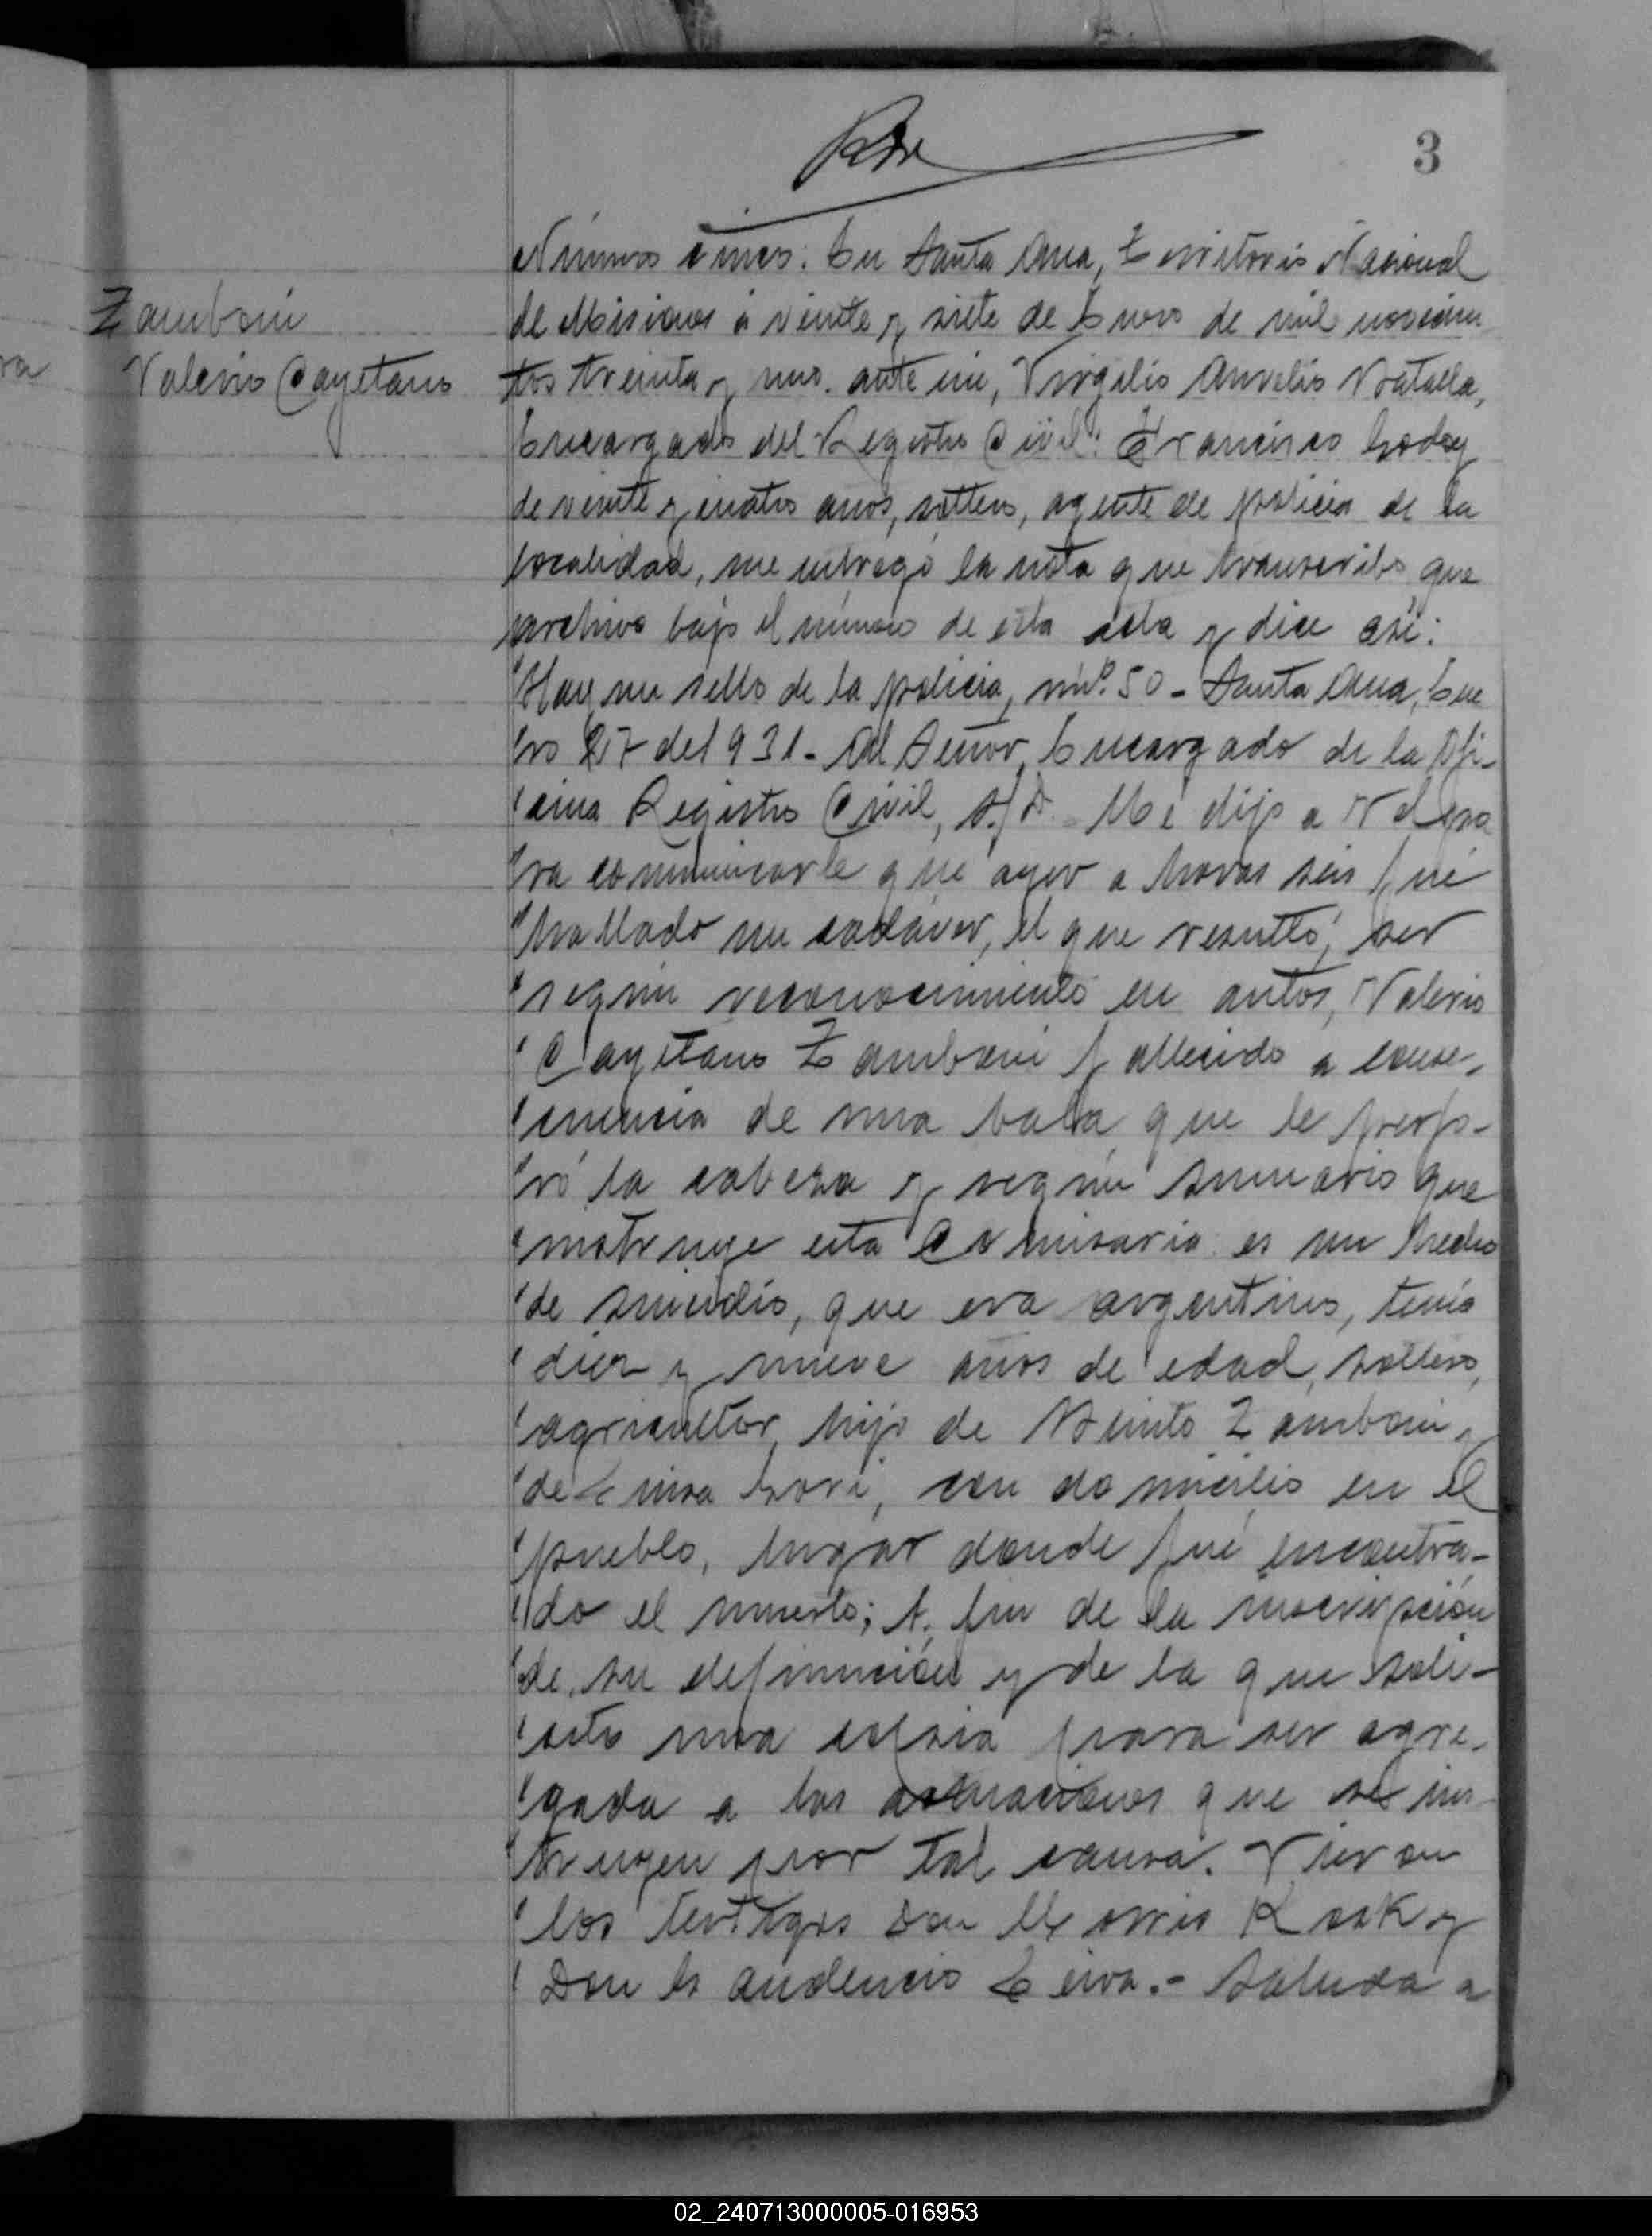 3
Zamboni
Valerio Cayetano
Número cinco: En Santa Ana, Territorio Nacional
de Misiones á veinte y siete de Enero de mil novecien
tos treinta y uno. ante mi, Virgilio Aurelio
Encargado del Registro Civil: Francisco Godoy
de veinte y cuatro años, soltero, agente de policia de la
localidad, me entregó la nota que transcribo, que
archivo bajo el número de esta acta y dice así:
"Hay un sello de la policia, nº 50 - Santa Ana, Ene
"ro 27 del 931 - Al Señor Encargado de la Ofi-
"cina Registro Civil, S/D. Me dijo a Vd pa
"ra comunicarle que ayer a horas seis fué
"hallado un cadáver, el que resultó, ser
"según reconocimiento en autos, Valerio
"Cayetano Zamboni fallecido a conse-
"cuencia de una bala que le perfo-
"ró la cabeza y según sumario que
"instruye esta Comisaria es un hecho
"de suicidio, que era argentino, tenía
"diez y nueve años de edad, soltero,
"agricultor, hijo de Benito Zamboni y
"de Luisa Gori, con domicilio en el
"pueblo, lugar donde fué encontra-
"do el muerto; A fin de la inscripción
"de su defunción y de la que soli-
"cito una copia para ser agre-
"gada a las actuaciones que se ins-
"truyen por tal causa. Vieron
"los testigos Don Kook y
"Don Gaudencio Leiva. - Saluda a
02_240713000005-016953